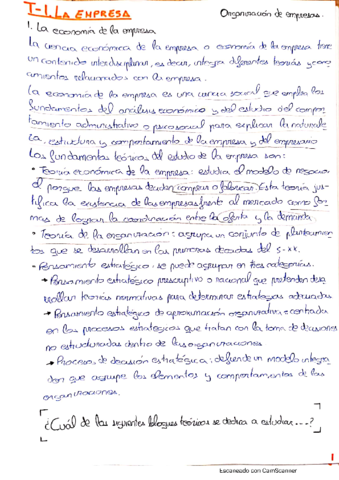 T-1. LA EMPRESA
Organización de empresas.
1. La economía de la empresa
La ciencia económica de la empresa o economía de la empresa tiene
un contenido interdisciplinar, es decir, integra diferentes teorías y cono-
cimientos relacionados con la empresa.
La economía de la empresa es una ciencia social que emplea los
fundamentos del análisis económico y del estudio del compor-
tamiento administrativo o psicosocial para explicar la naturale
za, estructura y comportamiento de la empresa y del empresario
Los fundamentos teóricos del estudio de la empresa son:
• Teoría económica de la empresa: estudia el modelo de negocio
el porque las empresas deciden comprar o fabricar. Esta teoría jus-
tifica la existencia de las empresas frente al mercado como for-
mas de lograr la coordinación entre la oferta y la demanda.
• Teoría de la organización: agrupa un conjunto de planteamien
tos que se desarrollan en las primeras décadas del s-XX.
• Pensamiento estratégico: se puede agrupar en tres categorías.
→ Pensamiento estratégico prescriptivo o racional que pretenden desa
rrollar teorías normativas para determinar estrategias adecuadas
→ Pensamiento estratégico de aproximación organizativa: centrada
en los procesos estratégicos que tratan con la toma de decisiones
no estructuradas dentro de las organizaciones
→ Proceso de decisión estratégica: defiende un modelo integra
dor que agrupe los elementos y comportamientos de las
organizaciones.
¿Cuál de los siguientes bloques teóricos se dedica a estudiar...?
1
Escaneado con CamScanner